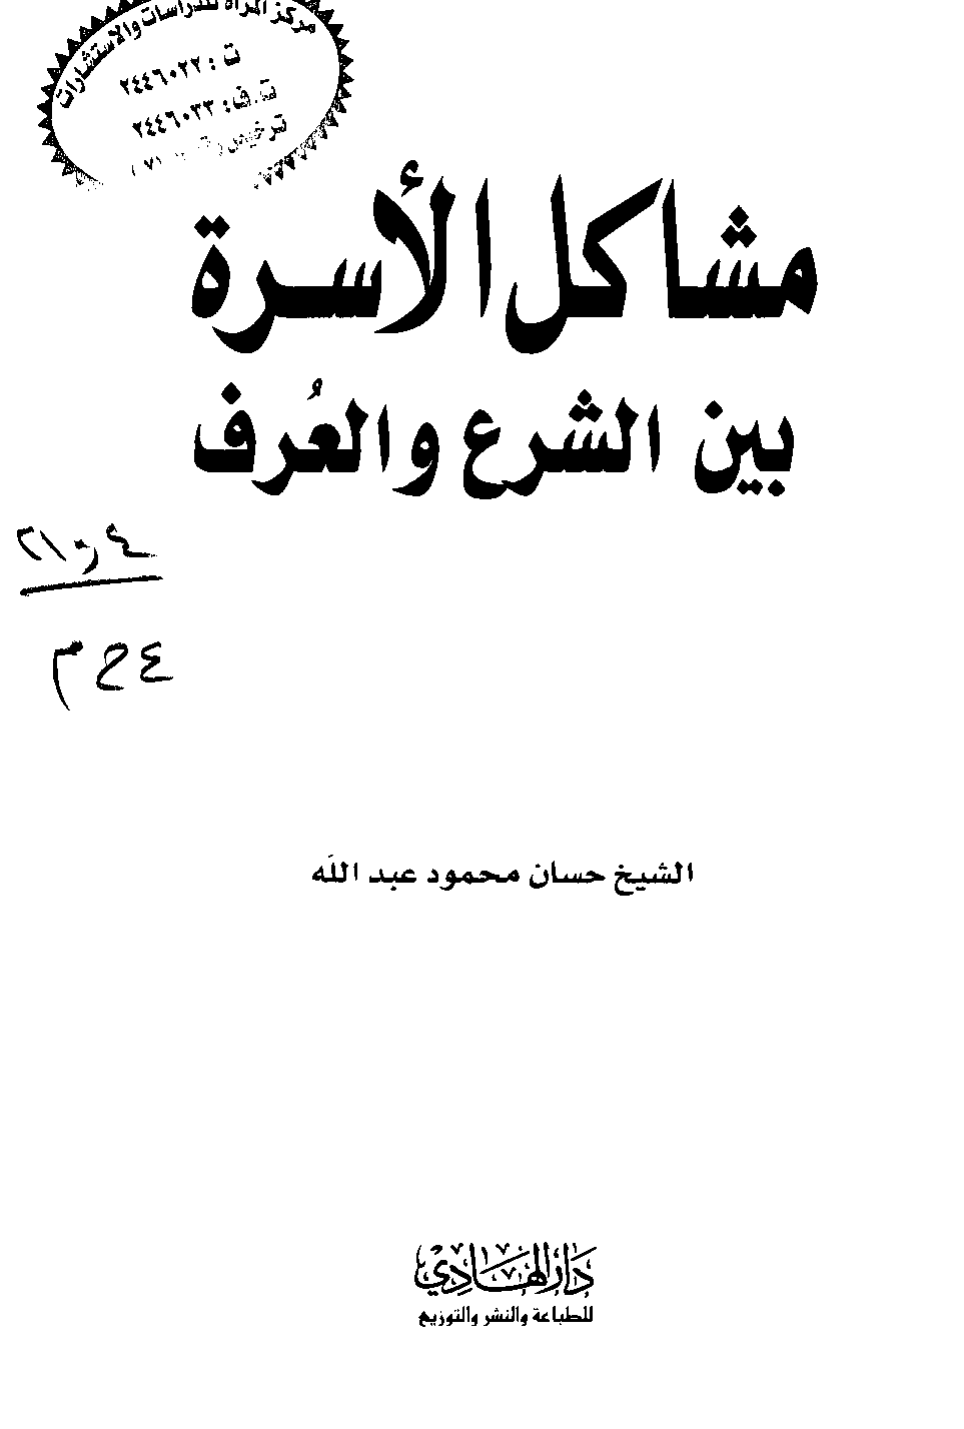 مركز المرأة للدراسات والاستشارات
ت : ٢٤٤٦٠٢٢
ت.ف: ٢٤٤٦٠٣٣
ترخيص
مشاكل الأسرة
بين الشرع والعُرف
٢١و٤
ع ح م
الشيخ حسان محمود عبد اللَه
دَار الهَادِي
للطباعة والنشر والتوزيع